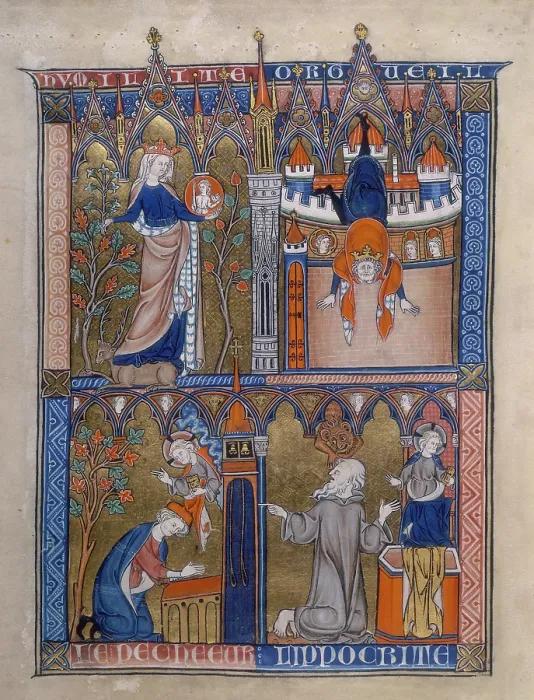 HUMILITE ORGUEIL
LE PECHEEUR LIPPOCRITE